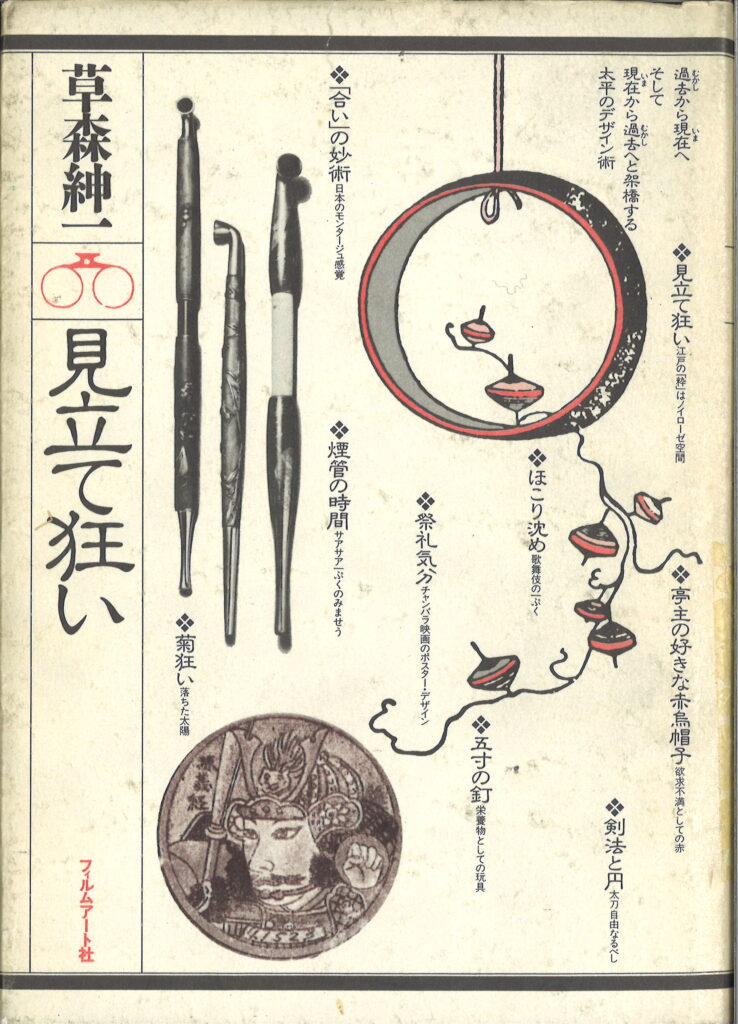 過去から現在へ
むかし いま
そして
現在から過去へと架橋する
いま むかし
太平のデザイン術
❖見立て狂い 江戸の「粋」はノイローゼ空間
❖亭主の好きな赤烏帽子 欲求不満としての赤
❖剣法と円 太刀自由なるべし
❖ほこり沈め 歌舞伎の一ぷく
❖五寸の釘 栄養物としての玩具
❖祭礼気分 チャンバラ映画のポスター・デザイン
❖「合い」の妙術 日本のモンタージュ感覚
❖煙管の時間 サアサア一ぷくのみませう
❖菊狂い 落ちた太陽
源義経
草森紳一
見立て狂い
フィルムアート社